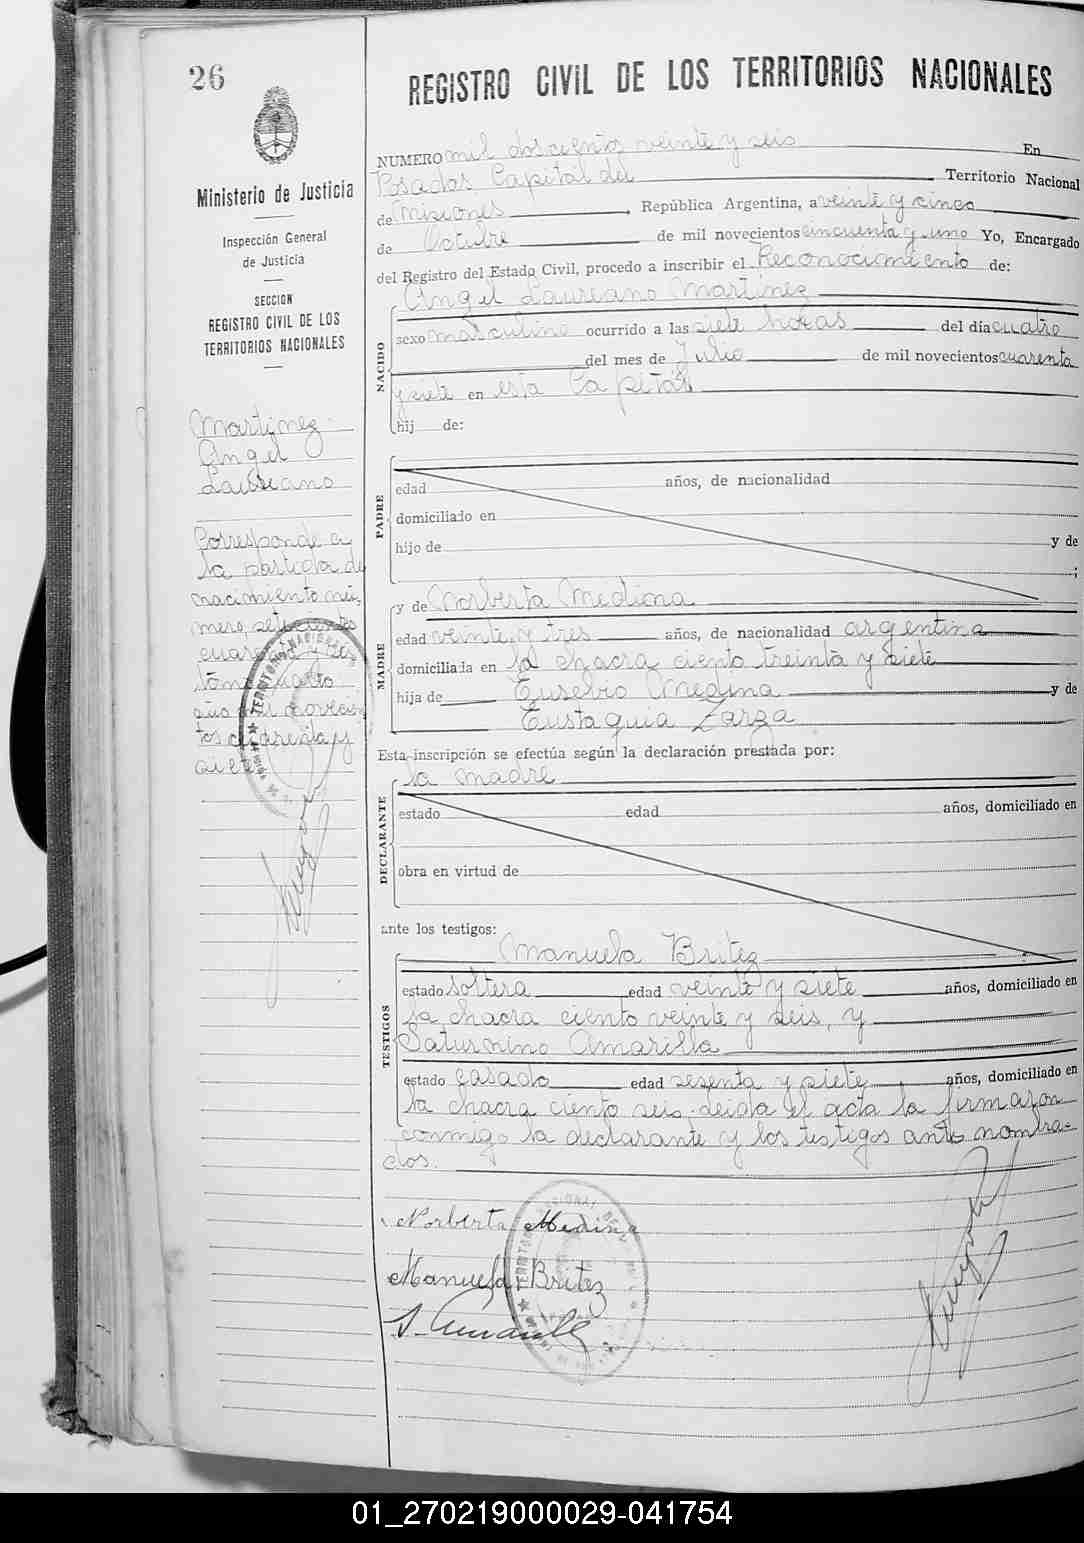 26
REGISTRO CIVIL DE LOS TERRITORIOS NACIONALES
Ministerio de Justicia
Inspección General
de Justicia
SECCION
REGISTRO CIVIL DE LOS
TERRITORIOS NACIONALES
Martinez
Angel
Laureano
Corresponde a
la partida de
nacimiento nú-
mero, setecientos
cuarenta y
tomo cuatro
año mil novecien
tos cuarenta y
NUMERO mil doscientos veinte y seis En
Posadas Capital del Territorio Nacional
de Misiones, República Argentina, a veinte y cinco
de Octubre de mil novecientos cincuenta y uno Yo, Encargado
del Registro del Estado Civil, procedo a inscribir el Reconocimiento de:
Angel Laureano Martinez
NACIDO
sexo masculino ocurrido a las siete horas del día cuatro
del mes de Julio de mil novecientos cuarenta
y siete en esta Capital
hij de:
PADRE
edad años, de nacionalidad
domiciliado en
hijo de y de
;
MADRE
y de Norberta Medina
edad veinte y tres años, de nacionalidad argentina
domiciliada en la chacra ciento treinta y siete
hija de Eusebio Medina y de
Eustaquia Zarza
Esta inscripción se efectúa según la declaración prestada por:
la madre
DECLARANTE
estado edad años, domiciliado en
obra en virtud de
ante los testigos:
Manuela Britez
TESTIGOS
estado soltera edad veinte y siete años, domiciliado en
la chacra ciento veinte y seis, y
Saturnino Amarilla
estado casado edad sesenta y siete años, domiciliado en
la chacra ciento seis. leida el acta la firmaron
conmigo la declarante y los testigos ante nombra-
dos.
Norberta Medina
Manuela Britez
S. Amarilla
01_270219000029-041754